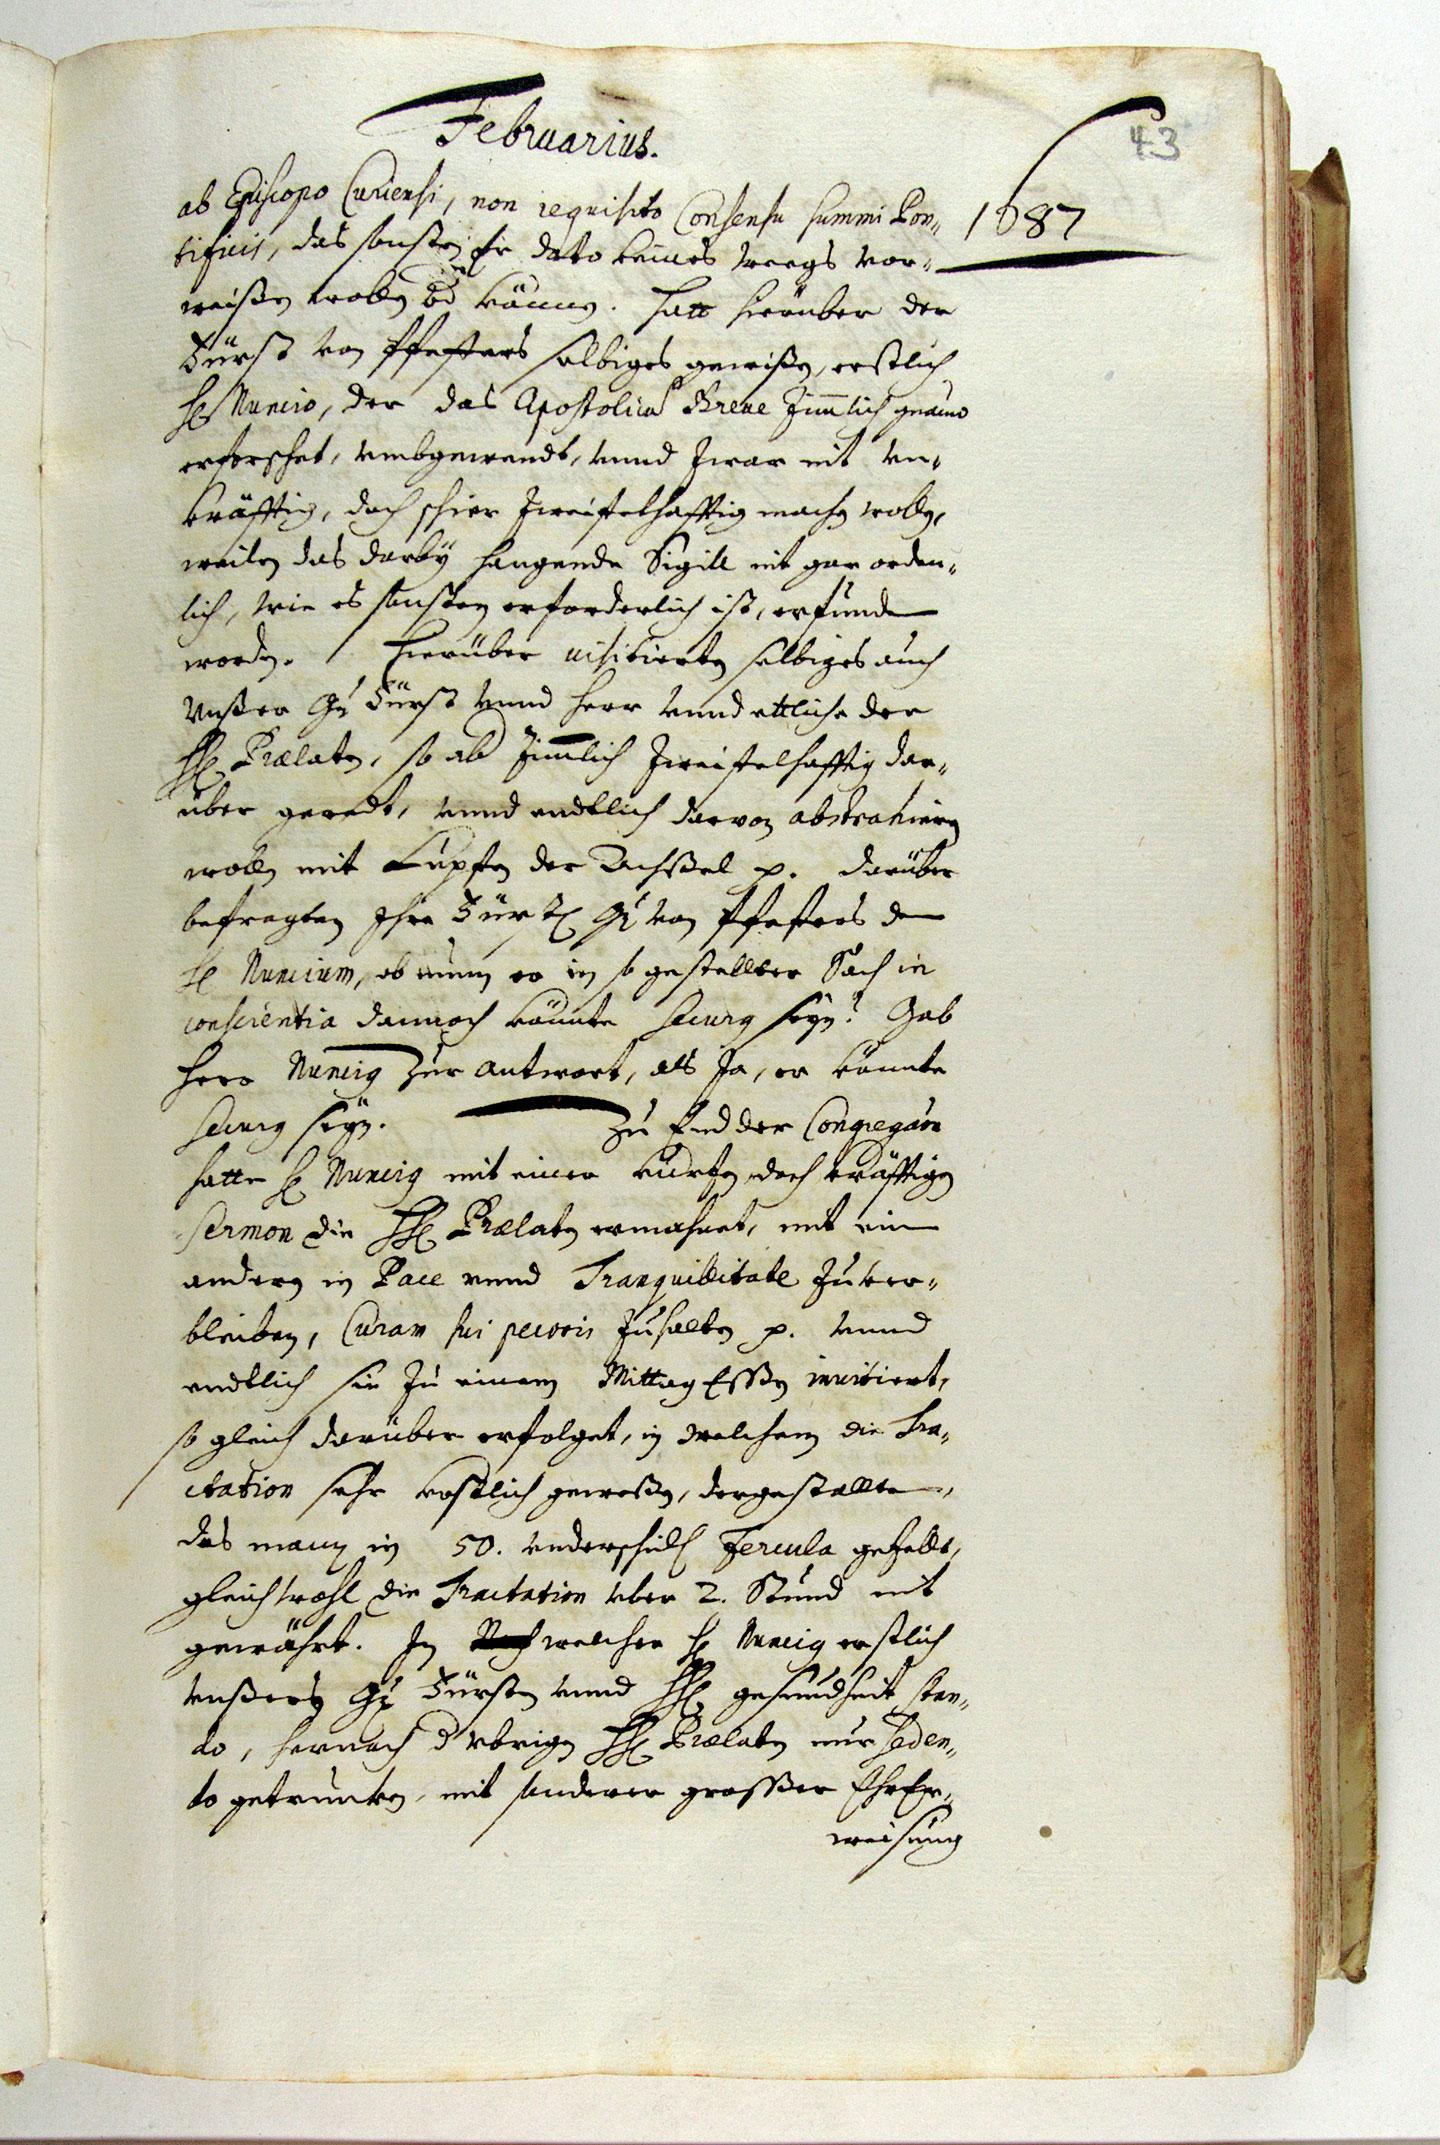 Februarius.
43
1687
ab Episcopo Curiensi, non requisito Consensu summi Pon-
tificis, das sonsten Er dato keines weegs vor-
weißen wollen vnd können. Hatt hierüber der
Fürst von Pfefers selbiges gewißen, erstlich
H. Nuncio, der das Apostolicum Breve zimlich genauw
erforschet, vmbgewendt, vnnd zwar nit vn-
kräfftig, doch schier zweifelhafftig machen wollen,
weilen das darbÿ hangende Sigill nit gar orden-
lich, wie es sonsten erforderlich ist, erfunden
worden. Hierüber visitierten selbiges auch
vnßer Gn. Fürst vnnd Herr vnnd ettliche der
HH. Prælaten, so ab zimlich zweifelhafftig dar-
über geredt, vnnd endtlich darvon abstrahieren
wollen mit Lupfen der Achßel p. darüber
befragten Ihre Fürstl. Gn. von Pfefers den
H. Nuncium, ob nunn er in so gestellter Sach in
conscientia dannoch könnte securus seÿn? Gab
Herr Nuncius zur antwort, als Ja, er könnte
securus seÿn. Zu End der Congregation
hatte H. Nuncius mit einer kurtzen doch kräfftigen
sermon die HH. Prælaten ermahnet, mit ein
andern in Pace vnnd Tranquillitate zuver-
bleiben, Curam sui pecoris zuhalten p. vnnd
endtlich sie zu einem Mittag Essen invitiert,
so gleich darüber erfolget, in welchem die Tra-
ctation sehr costlich geweßen, dergestallten,
das mann in 50. vnderschidl. Fercula gezellt,
gleichwohl die Tractation vber 2. Stund nit
gewährt. In welcher H. Nuncius erstlich
vnßers Gn. Fürsten vnnd HH. gesundheit stan-
do, hernach d. vbrigen HH. Prælaten nur seden-
do getruncken, mit sonderer grosser EhrEr-
weisung